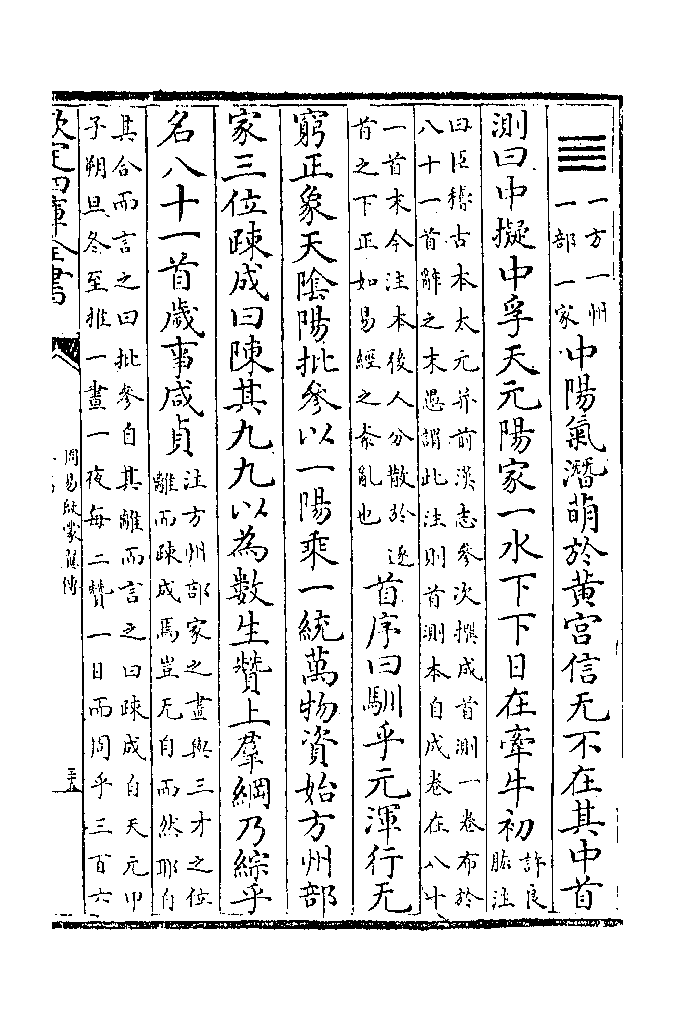 一方一州
一部一家
中陽氣潛萌於黃宮信无不在其中首
測曰中擬中孚天元陽家一水下下日在牽牛初
許良
肱注
曰臣稽古本太元并前漢志參次撰成首測一卷布於
八十一首辭之末愚謂此注則首測本自成卷在八十
一首末今注本後人分散於逐
首之下正如易經之紊亂也
首序曰馴乎元渾行无
窮正象天陰陽批參以一陽乘一統萬物資始方州部
家三位疎成曰陳其九九以為數生贊上羣綱乃綜乎
名八十一首歲事咸貞
注方州部家之畫與三才之位
離而疎成焉豈无自而然耶自
其合而言之曰批參自其離而言之曰疎成自天元甲
子朔旦冬至推一晝一夜每二贊一日而周乎三百六
欽定四庫全書
周易啟蒙翼傳